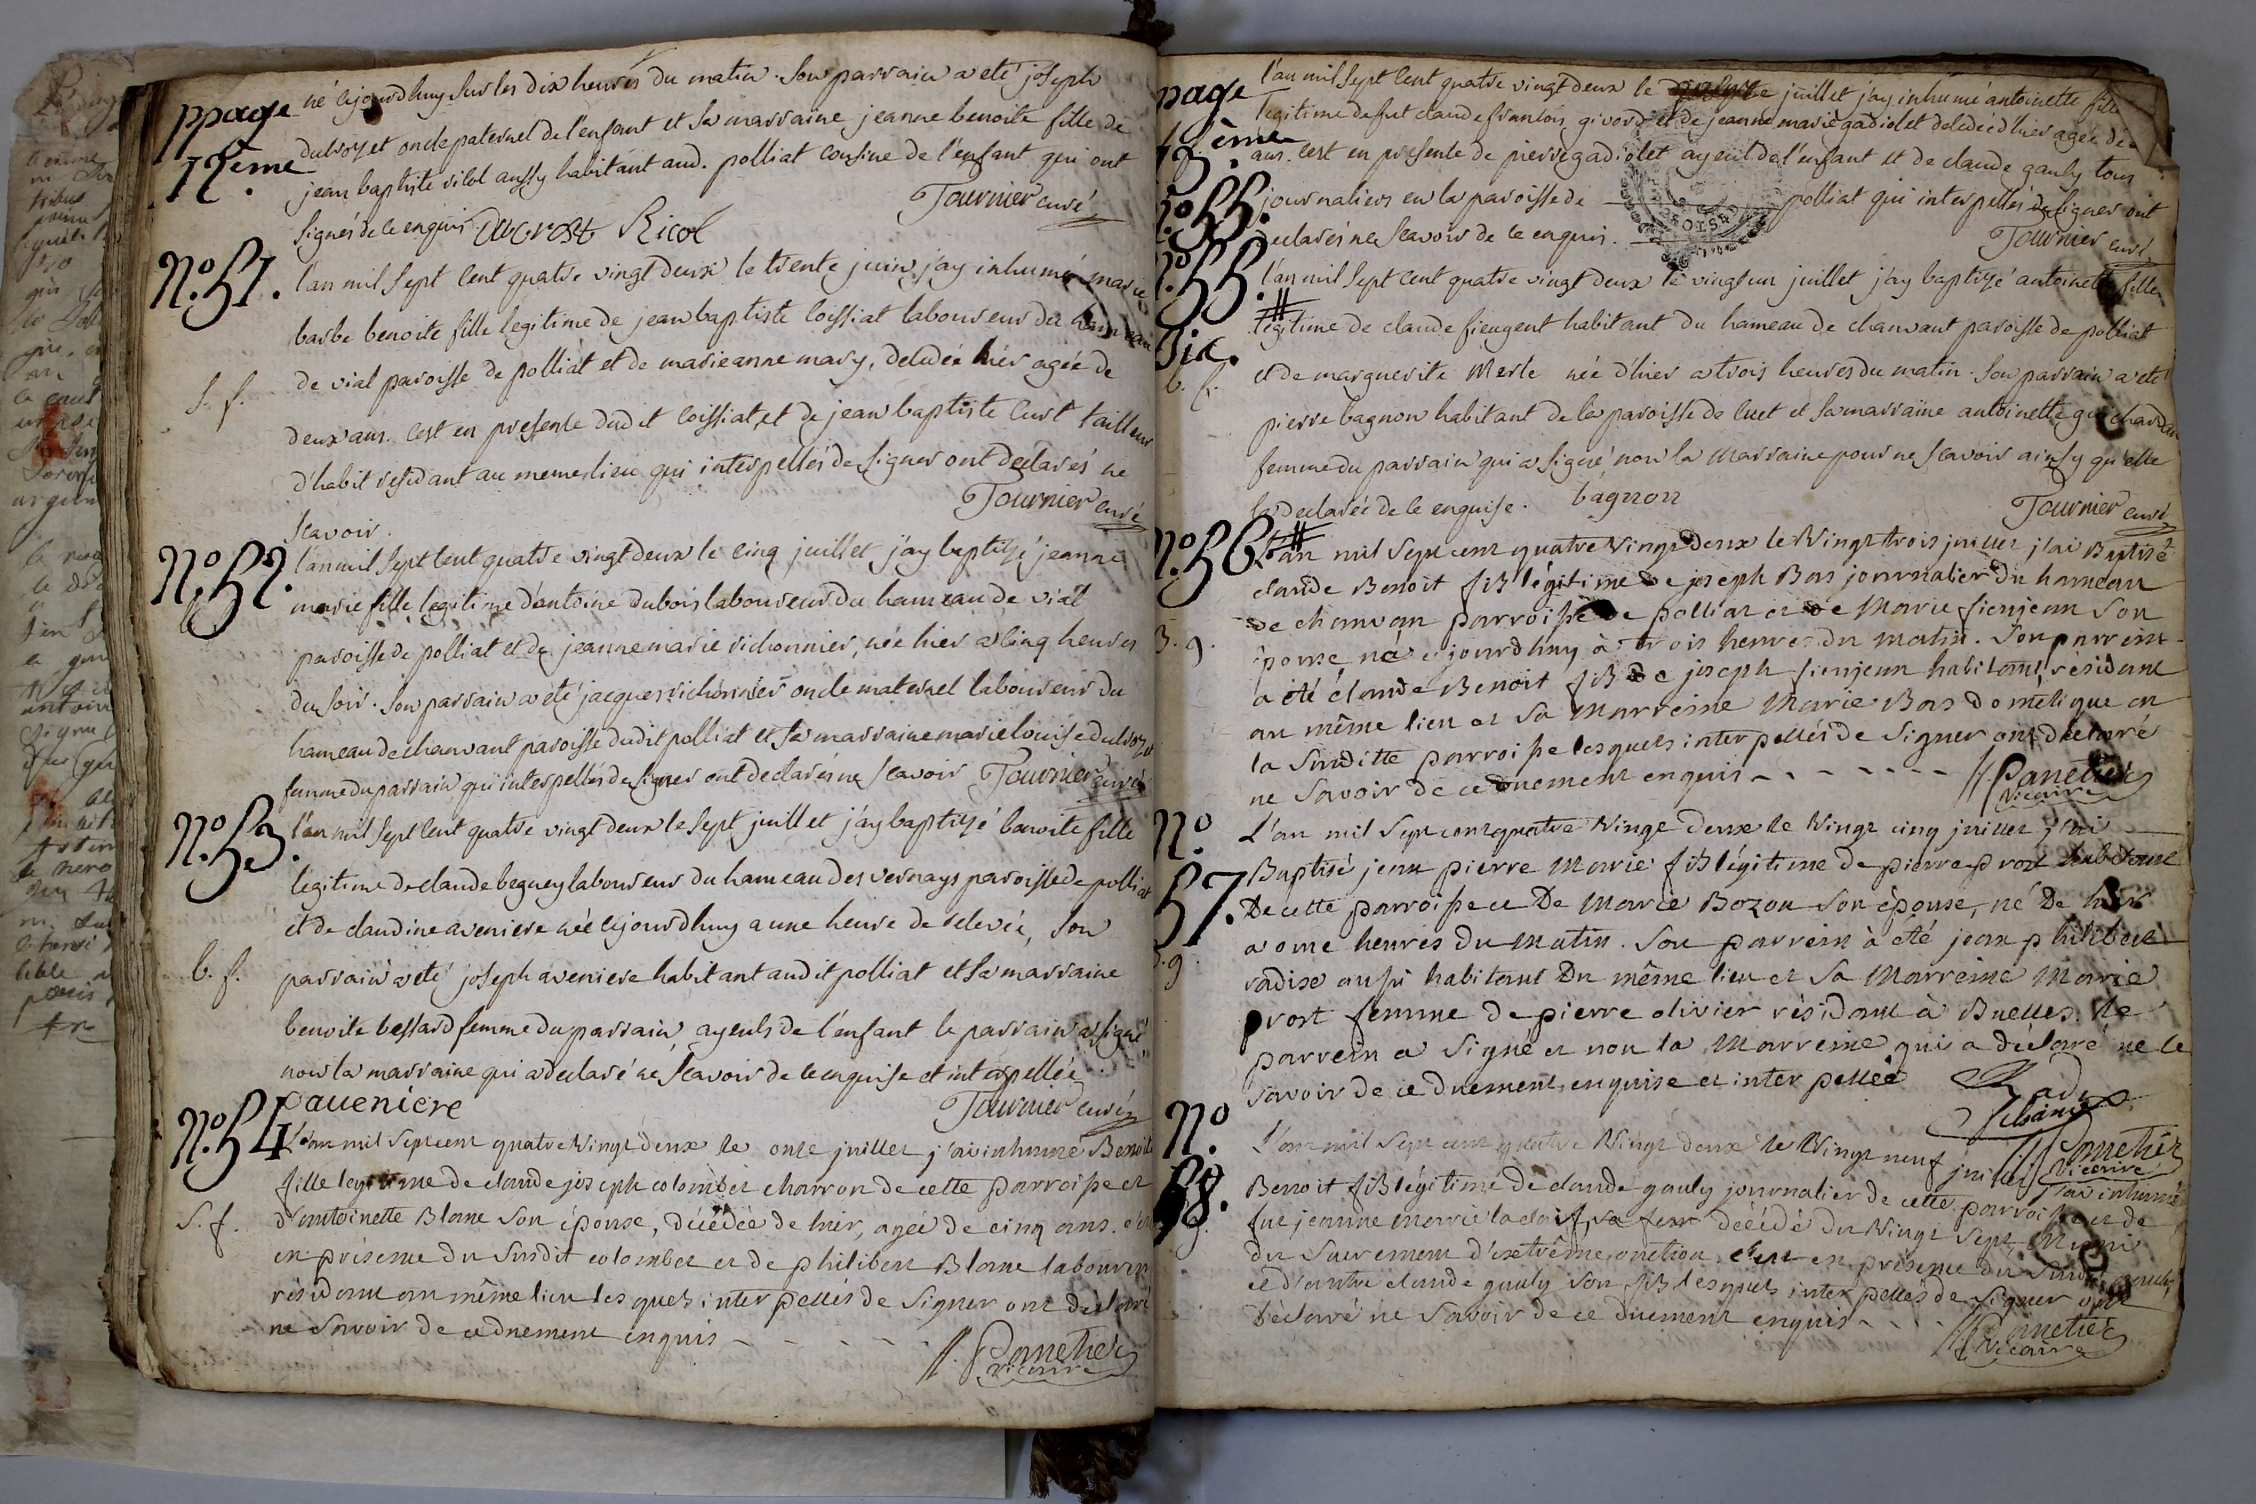 ppage
12ème
né cejourdhuy sur les dix heures du matin. Son parrain a eté joseph
ducrozet oncle paternel de l'enfant et sa marraine jeanne benoite fille de
jean baptiste ricol aussy habitant aud. polliat cousine de l'enfant qui ont
signés de ce enquis Ducrozt Ricol Tournier curé
N.o 51.
l'an mil sept cent quatre vingt deux le trente juin j'ay inhumé marie
barbe benoite fille legitime de jean baptiste loissiat laboureur du hameau
de vial paroisse de polliat et de marieanne mary, decedée hier agée de
S. f.
deux ans. c'est en presence dudit loissiat et de jean baptiste curt tailleur
d'habit residant au meme lieu qui interpellés de signer ont declarés ne
scavoir. Tournier curé
N.o 52.
l'an mil sept cent quatre vingt deux le cinq juillet j'ay baptizé jeanne
marie fille legitime d'antoine dubois laboureur du hameau de vial
paroisse de polliat et de jeanne marie richonnier, née hier a cinq heures
du soir. Son parrain a eté jacques richonnier oncle maternel laboureur du
hameau de chanvant paroisse dudit polliat et sa marraine marie louise ducrozet
femme du parrain qui interpellés de signer ont declarés ne scavoir Tournier curé
N.o 53.
l'an mil sept cent quatre vingt deux le sept juillet j'ay baptizé benoite fille
legitime de claude beguey laboureur du hameau des vernays paroisse de polliat
et de claudine aveniere née cejourdhuy a une heure de relevée, son
b. f.
parrain a eté joseph aveniere habitant audit polliat et sa marraine
benoite bessard femme du parrain, ayeuls de l'enfant le parrain a signé
non la marraine qui a declaré ne scavoir de ce enquise et interpellée
paveniere Tournier curé
N.o 54
L'an mil sept cent quatre Vingt deux le onze juillet j'ai inhumé Benoite
fille legitime de claude joseph colombet charron de cette parroisse et
S. f.
d'antoinette Blanc son épouse, décédée de hier, agée de cinq ans. c'est
en présence du susdit colombet et de philibert Blanc laboureur
résidant au même lieu lesquels interpellés de signer ont déclaré
ne savoir de ce duement enquis - - - - - - Panethier
vicaire
page
13ème
l'an mil sept cent quatre vingt deux le juillet j'ay inhumé antoinette fille
legitime de fut claude francois givord et de jeanne marie gadiolet decedée d'hier agée de
ans. c'est en presence de pierre gadiolet ayeul de l'enfant et de claude gauly tous
N.o 55.
journaliers en la paroisse de polliat qui interpellés de signer ont
declarés ne scavoir de ce enquis. Tournier curé
N.o 55.
bis.
l'an mil sept cent quatre vingt deux le vingt un juillet j'ay baptizé antoinette fille
legitime de claude fieugent habitant du hameau de chanvant paroisse de polliat
b. f.
et de marguerite Merle née d'hier a trois heures du matin. Son parrain a eté
pierre bagnon habitant de la paroisse de cuet et sa marraine antoinette guichardan
femme du parrain qui a signé, non la marraine pour ne scavoir ainsy qu'elle
la declarée de ce enquise. bagnon Tournier curé
N.o 56.
L'an mil sept cent quatre Vingt deux le Vingt trois juillet j'ai Baptisé
claude Benoit fils légitime de joseph Bas journalier du hameau
de chanvan parroisse de polliat et de Marie fienjean son
B. g.
épouse né cejourdhuy à trois heures du matin. Son parrein
a été claude Benoit fils de joseph fienjean habitant, résidant
au même lieu et sa Marreine Marie Bas domestique en
la susditte parroisse lesquels interpellés de signer ont déclaré
ne savoir de ce duement enquis - - - - - - - - Panethier
vicaire
N.o
57.
L'an mil sept cent quatre Vingt deux le Vingt cinq juillet j'ai
Baptisé jean pierre Marie fils légitime de pierre prost habitant
De cette parroisse et De Marie Bozon son épouse, né De hier
B. g.
a onze heures du matin. Son parrein à été jean philibert
radix aussi habitant du même lieu et sa Marreine Marie
prost femme de pierre olivier résidant à Buelles. le
parrein a signé et non la Marreine qui a déclaré ne le
savoir de ce duement enquise et interpellée Radix
Panethier
vicaire
N.o
58.
L'an mil sept cent quatre Vingt deux le Vingt neuf juillet j'ai inhumé
Benoit fils légitime de claude gauly journalier de cette parroisse et de
fut jeanne Marie sa femme décédé du Vingt sept, Muni
S. g.
du sacrement d'extrême onction. c'est en présence du susdit gauly
et d'autre claude gauly son fils lesquels interpellés de signer ont
Déclaré ne savoir de ce duement enquis - - - - Panethier
vicaire